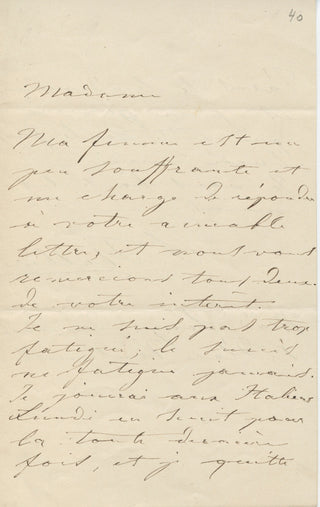 40
Madame
Ma femme est un
peu souffrante et
me charge de répondre
à votre aimable
lettre, et nous vous
remercions tous deux
de votre interet.
Je ne suis pas trop
fatigué, le succès
ne fatigue jamais.
Je jouerai aux Italiens
Lundi en huit pour
la toute dernière
fois, et je quitte